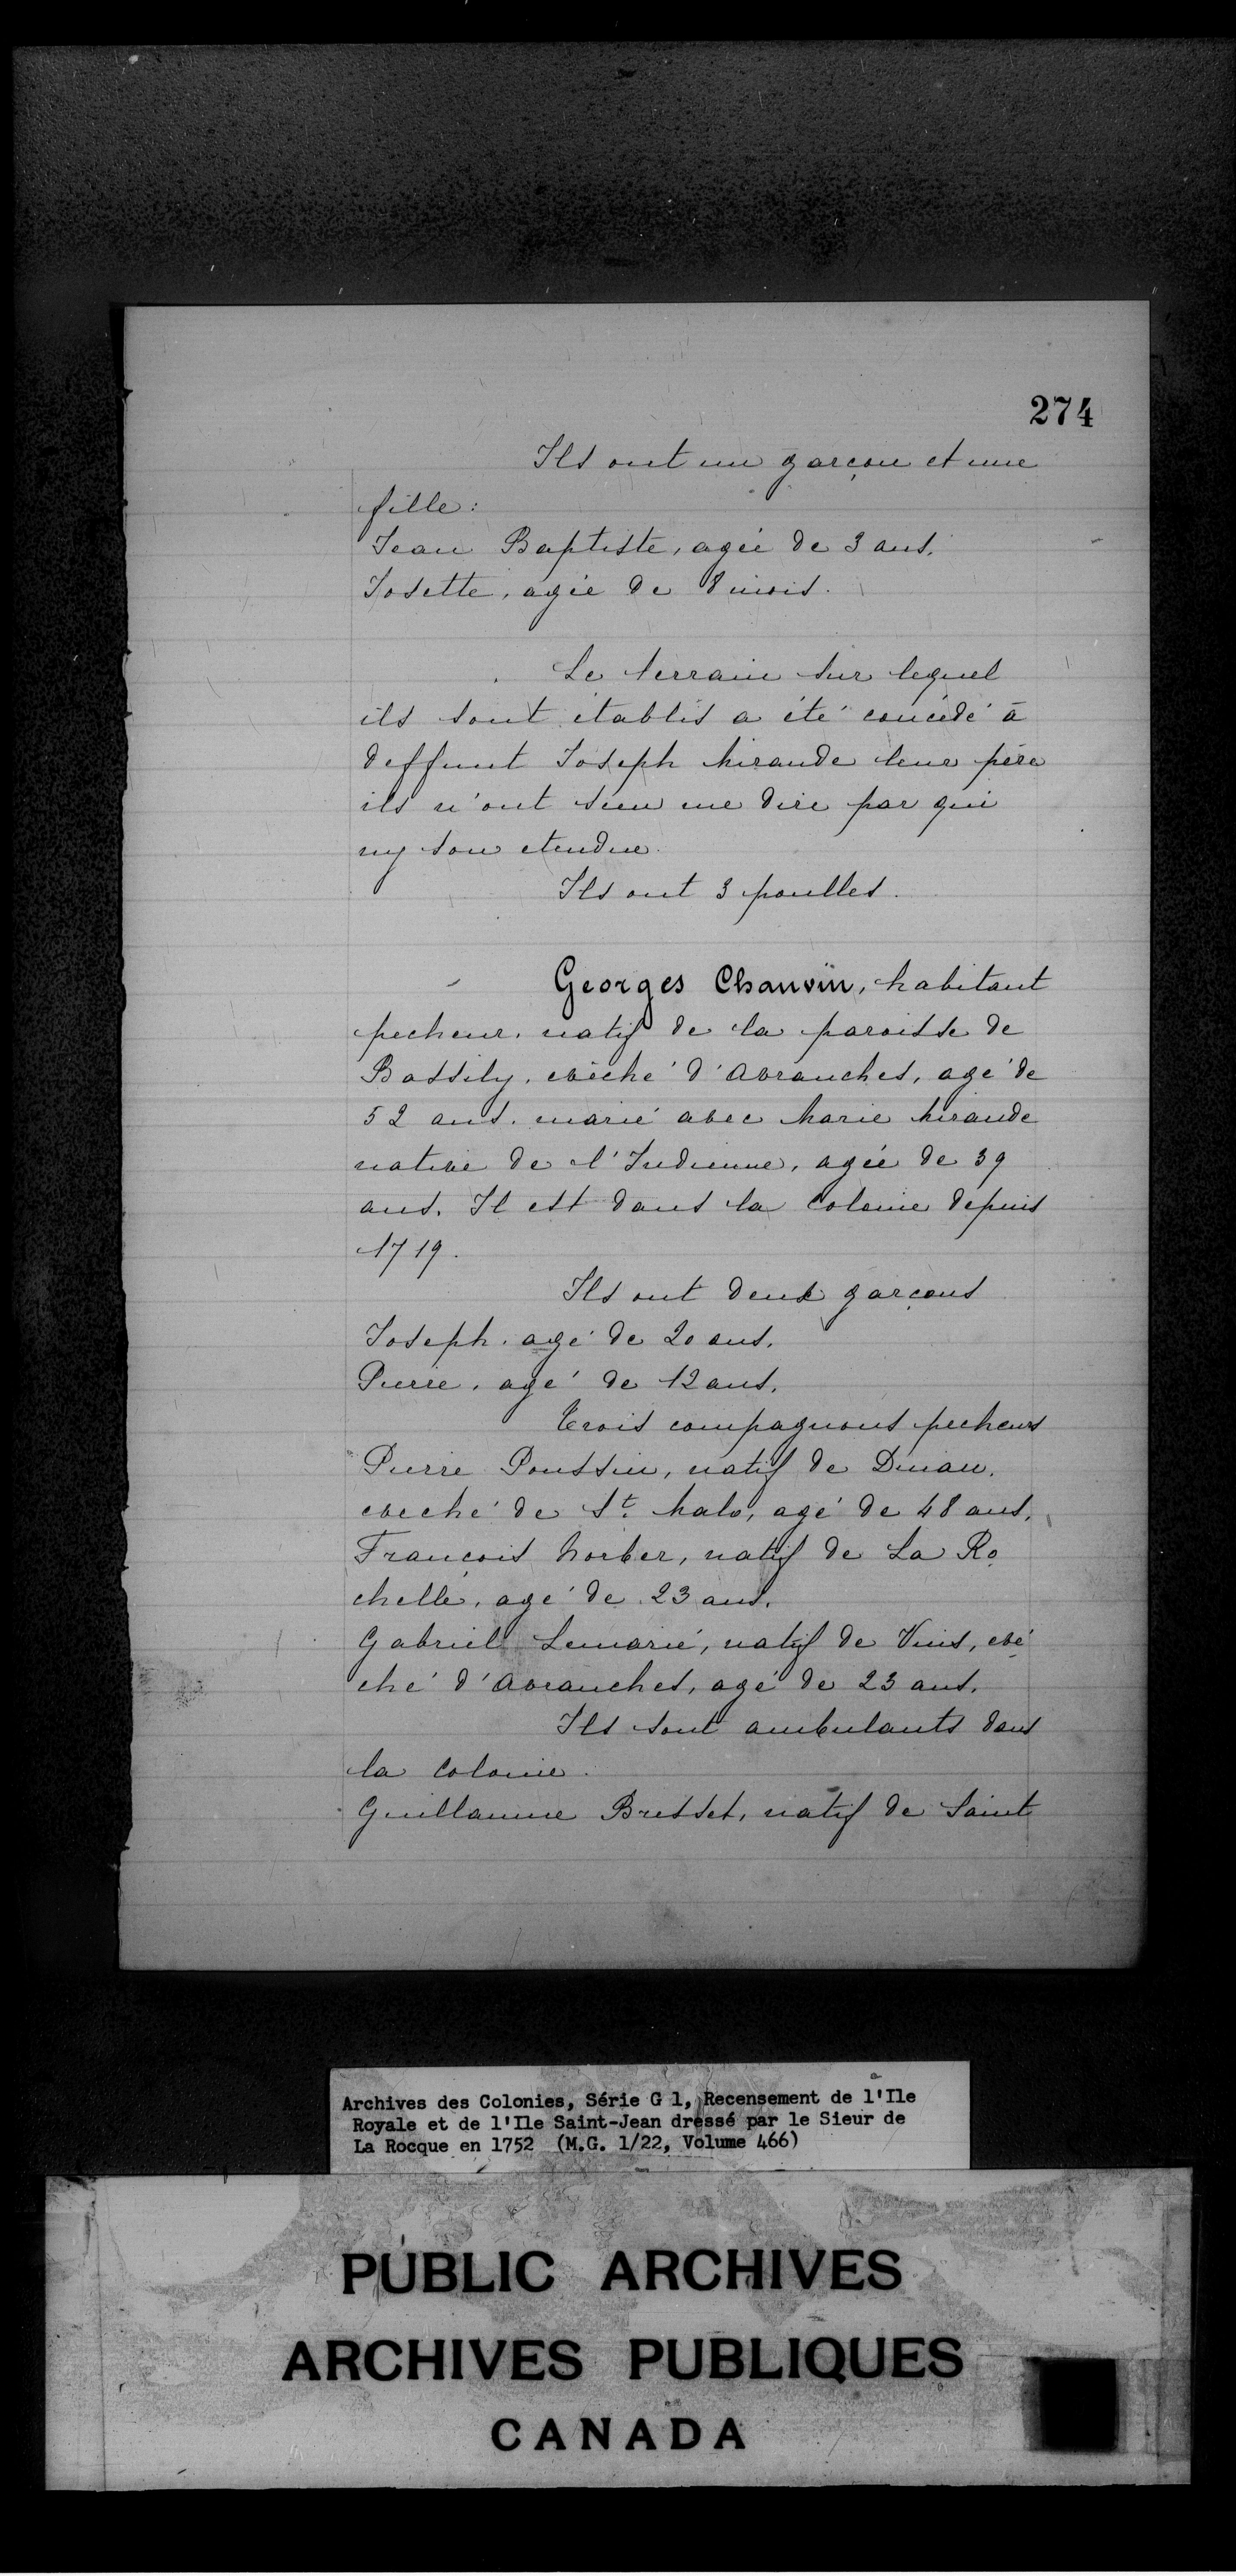 274
Ils ont un garçon et une
fille:
Jean Baptiste, agée de 3 ans.
Josette, agée de 8 mois.
Le terrain sur lequel
ils sont établis a été concédé à
deffunt Joseph Mirande leur père
ils n'ont sceu me dire par qui
ny son etendue.
Ils ont 3 poulles.
Georges Chauvin, habitant
pecheur, natif de la paroisse de
Bassily, evêché d'Avranches, agé de
52 ans, marié avec Marie Mirande
native de l'Indienne, agée de 39
ans. Il est dans la Colonie depuis
1719.
Ils ont deux garçons
Joseph, agé de 20 ans.
Pierre, agé de 12 ans.
Trois compagnons pecheurs
Pierre Poussin, natif de Dinan,
eveché de St. Malo, agé de 48 ans.
François Norber, natif de La Ro
chelle, agé de 23 ans.
Gabriel Lemarié, natif de Vins, evé
ché d'Avranches, agé de 23 ans.
Ils sont ambulants dans
la Colonie.
Guillaume Bresset, natif de Saint
Archives des Colonies, Série G 1, Recensement de l'Ile
Royale et de l'Ile Saint-Jean dressé par le Sieur de
La Rocque en 1752 (M.G. 1/22, Volume 466)
PUBLIC ARCHIVES
ARCHIVES PUBLIQUES
CANADA